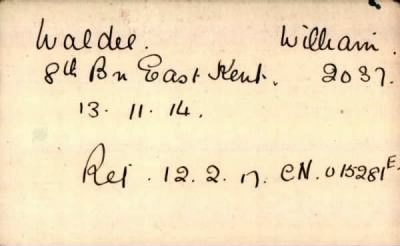 Waldee. William.
8th Bn East Kent. 2037.
13. 11. 14.
Rej. 12. 2. 17. CN. 015281E.